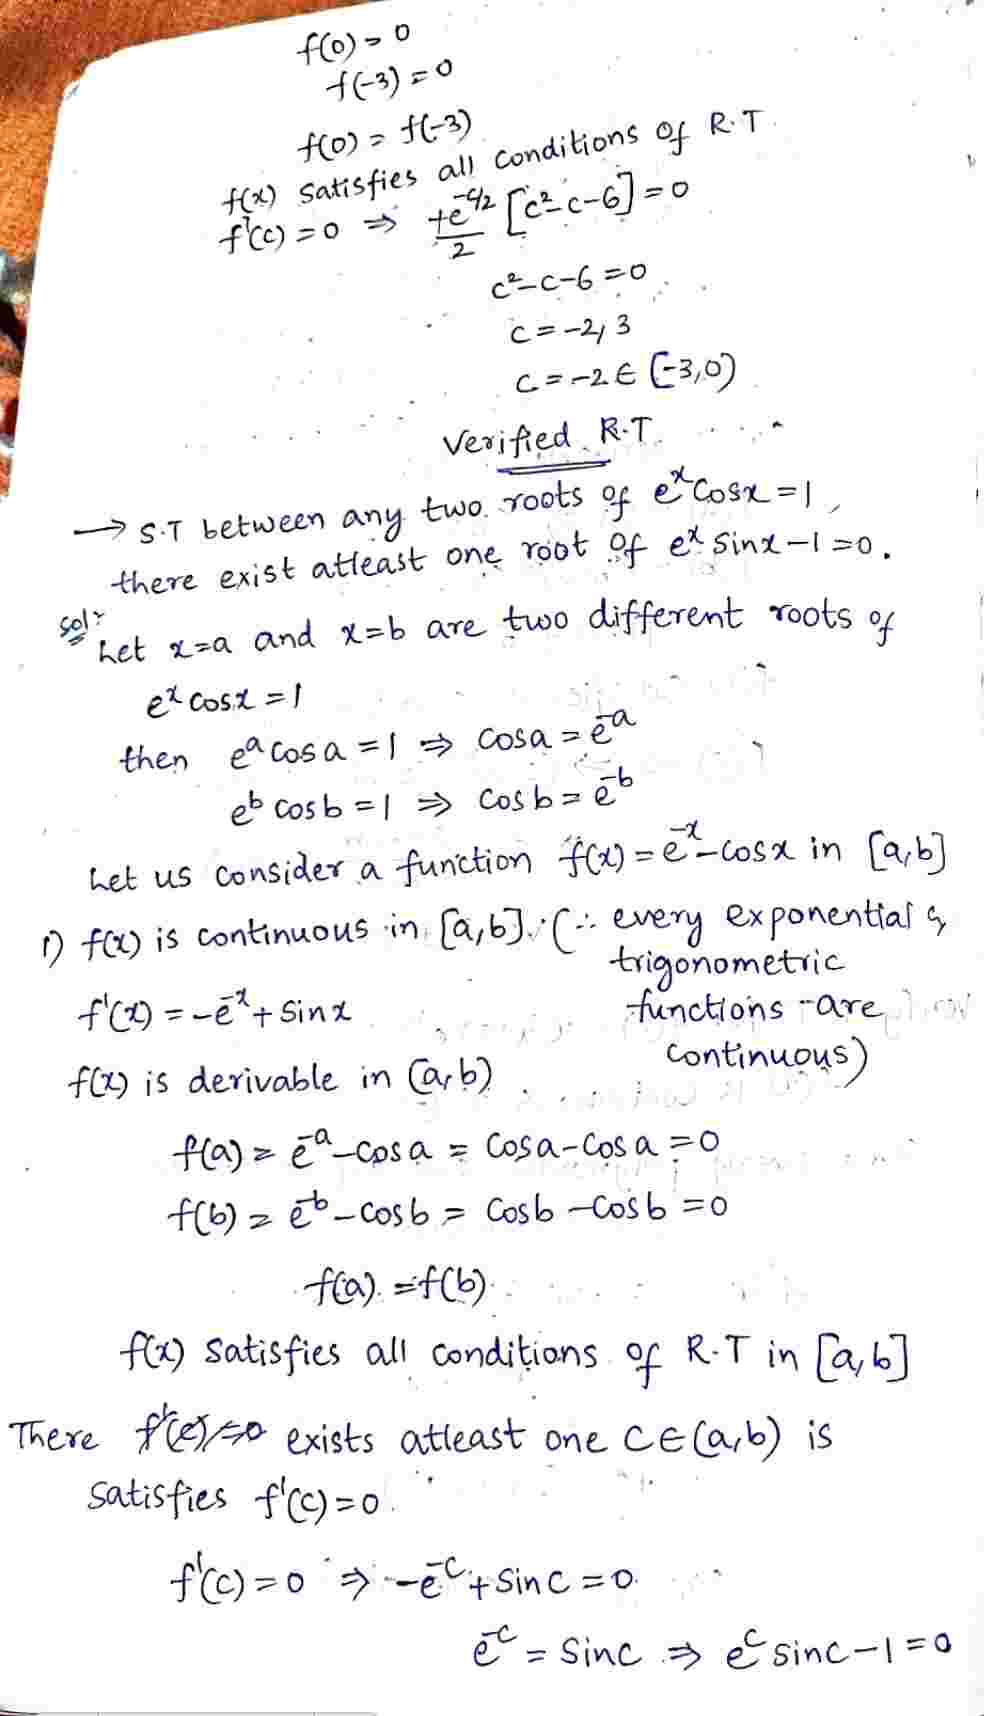 f(0) = 0
f(-3) = 0
f(0) = f(-3)
f(x) satisfies all conditions of R.T
f'(c) = 0 ⇒ +e^{-c/2}/2 [c²-c-6] = 0
c²-c-6 = 0
c = -2, 3
c = -2 ∈ (-3,0)
Verified R.T.
→ S.T between any two roots of e^x cosx = 1,
there exist atleast one root of e^x sinx - 1 = 0.
Sol:
Let x=a and x=b are two different roots of
e^x cosx = 1
then e^a cos a = 1 ⇒ cosa = e^{-a}
e^b cosb = 1 ⇒ cosb = e^{-b}
Let us consider a function f(x) = e^{-x} - cosx in [a,b]
1) f(x) is continuous in [a,b]. (∵ every exponential &
trigonometric
f'(x) = -e^{-x} + sinx functions are
continuous)
f(x) is derivable in (a,b)
f(a) = e^{-a} - cosa = cosa - cosa = 0
f(b) = e^{-b} - cosb = cosb - cosb = 0
f(a) = f(b)
f(x) satisfies all conditions of R.T in [a,b]
There f'(c)=0 exists atleast one c∈(a,b) is
satisfies f'(c) = 0.
f'(c) = 0 ⇒ -e^{-c} + sinc = 0
e^{-c} = sinc ⇒ e^c sinc - 1 = 0